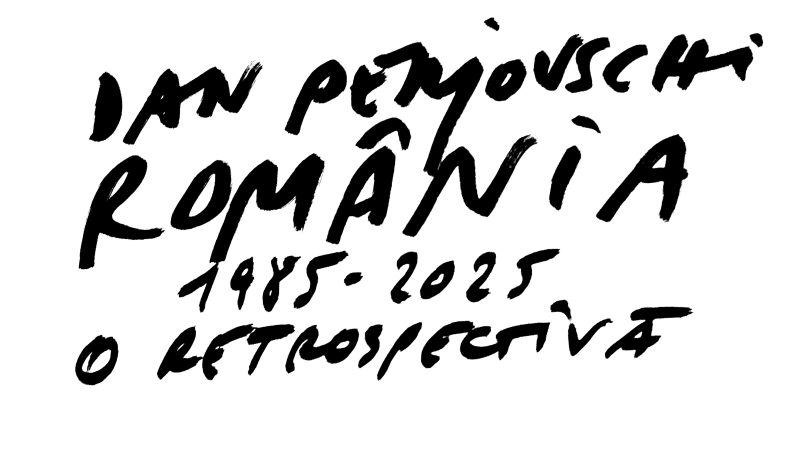 DAN PERJOVSCHI
ROMÂNIA
1985-2025
O RETROSPECTIVĂ